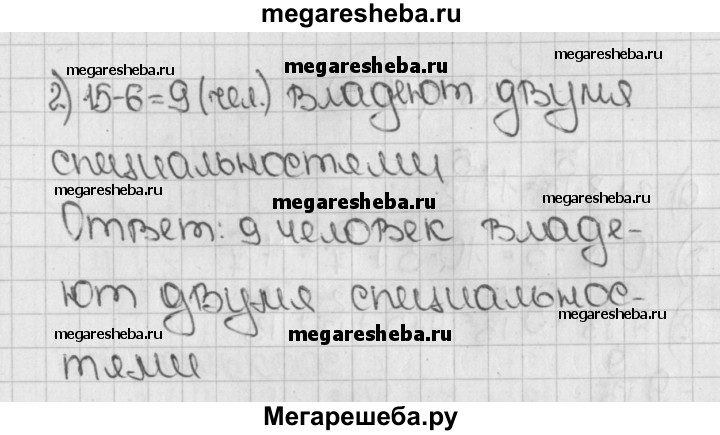 megaresheba.ru
megaresheba.ru
megaresheba.ru megaresheba.ru
2) 15-6=9 (чел.) владеют двумя
специальностями
megaresheba.ru megaresheba.ru megaresheba.ru
Ответ: 9 человек владе-
ют двумя специальнос-
megaresheba.ru megaresheba.ru megaresheba.ru
тями
Мегарешеба.ру